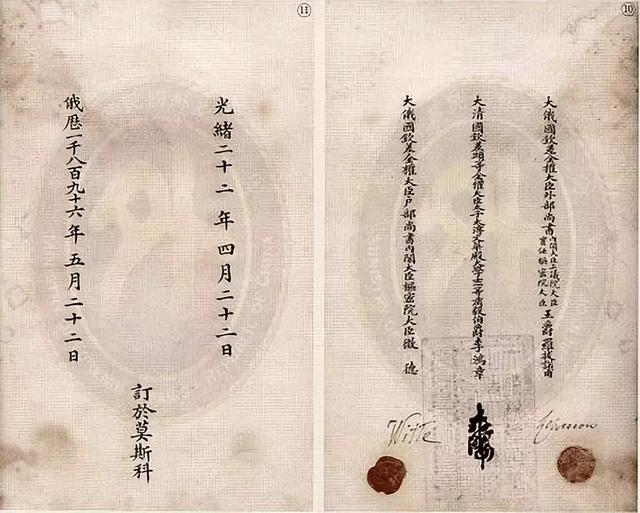 ⑩
大俄國欽差全權大臣外部尚書內閣大臣上議院大臣實任樞密院大臣王爵羅拔諾甫
大清國欽差頭等全權大臣太子太傅文華殿大學士一等肅毅伯爵李鴻章
大俄國欽差全權大臣戶部尚書內閣大臣樞密院大臣微德
Witte
⑪
光緒二十二年四月二十二日
俄曆一千八百九十六年五月二十二日
訂於莫斯科